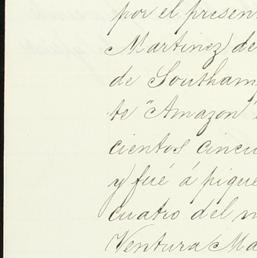 por el presen
Martinez de
de Southam
te "Amazon"
cientos cincu
y fué á pique
cuatro del m
Ventura Ma